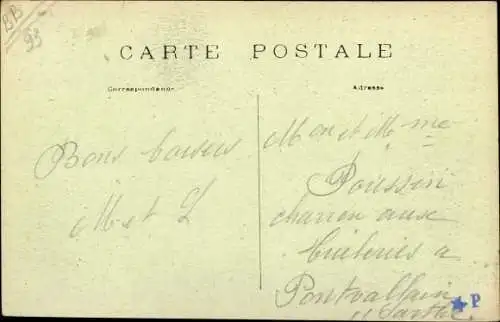 BB
93
CARTE POSTALE
Correspondance
Adresse
Bons baisers
M et L
Mon et Mme
Poussin
charron aux
a
Pontvallain
Sarthe.
P